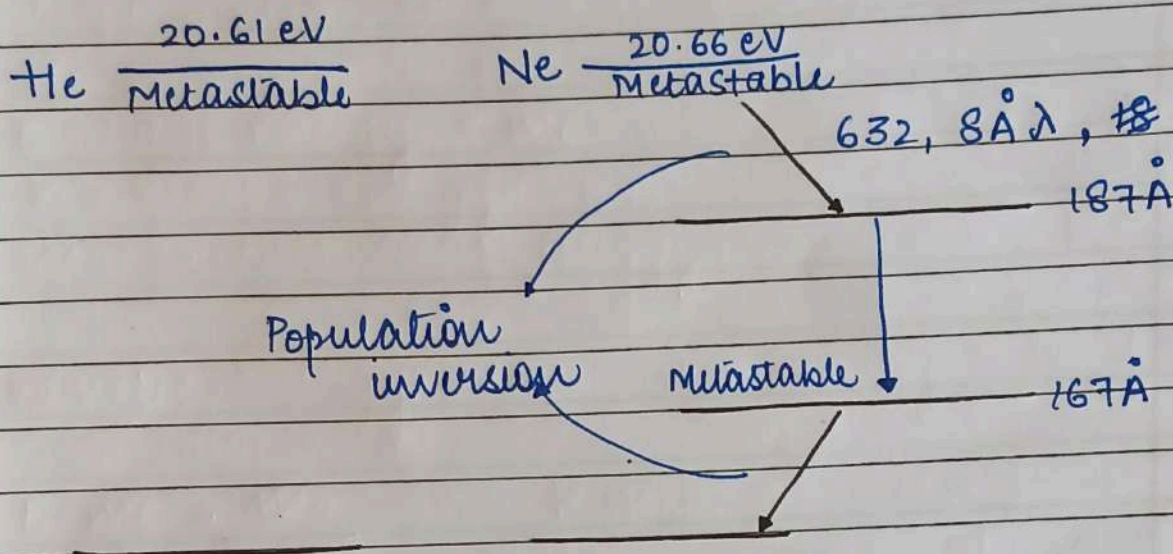 20.61 eV
He Metastable
20.66 eV
Ne Metastable
632, 8Å λ, 18
187Å
Population
inversion
Metastable
167Å